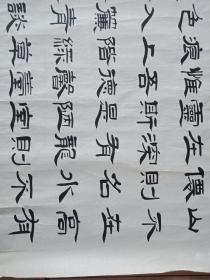 山不在高有
僊則名水不
在深有龍則
靈斯是陋室
惟吾德馨薹
痕上階綠草
色入簾青談